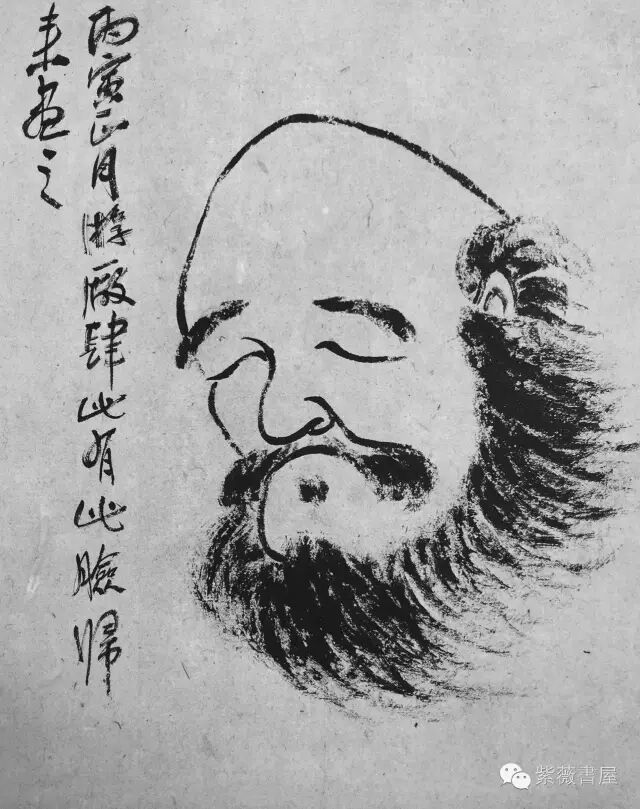 丙寅正月游廠肆此有此臉歸
來畫之
紫薇書屋